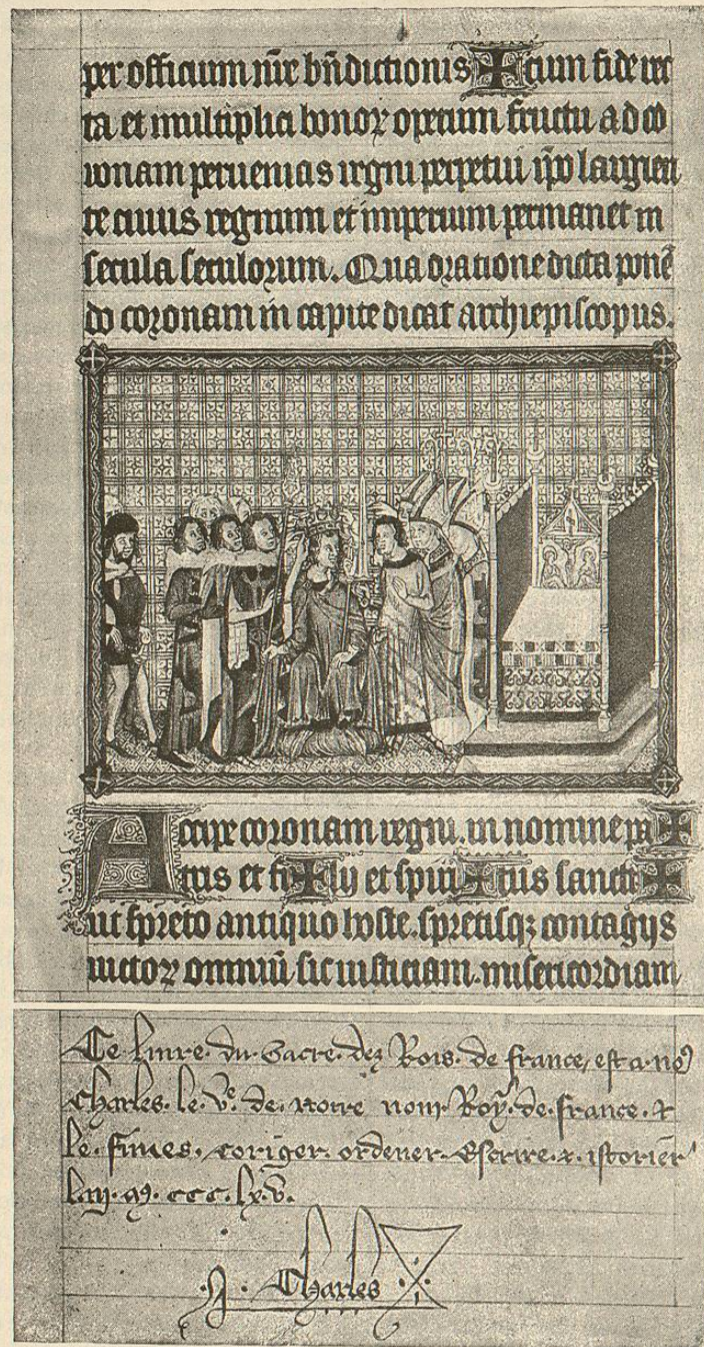 per officium nr̄e bn̄dictionis ✠ cum fide rec
ta et multiplici bonoꝝ operum fructu ad co
ronam peruenias regni perpetui ip̄o largien
te cuius regnum et imperium permanet in
secula seculorum. Qua oratione dicta ponē
do coronam in capite dicat archiepiscopus.
Accipe coronam regni. in nomine pa ✠
tris et fi ✠ lij et spiri ✠ tus sancti ✠
ut spreto antiquo hoste. spretisqꝫ contagijs
uitioꝝ omniū sic iusticiam. misericordiam
Ce liure du Sacre dez Rois de france, est a no⁹
Charles le Ve. de notre nom Roy de france. &
le fimes coriger ordener Escrire & istorier
lan. m. ccc. lx. v.
Charles